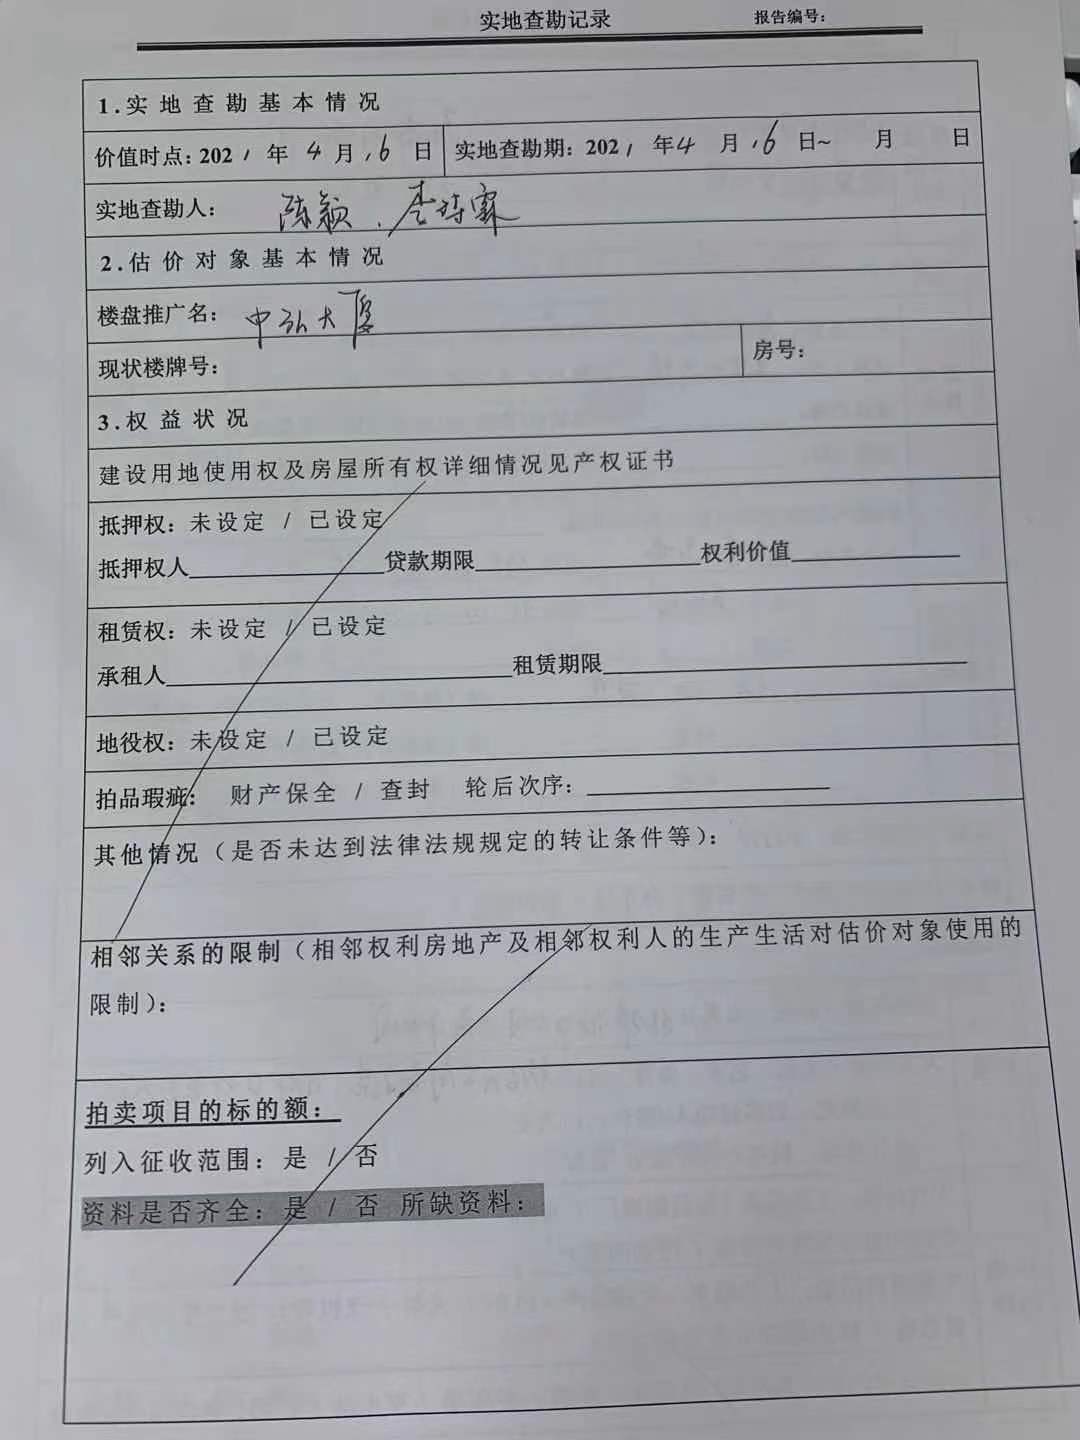 实地查勘记录 报告编号：
1.实地查勘基本情况
价值时点：2021年4月16日 实地查勘期：2021年4月16日~ 月 日
实地查勘人： 陈颖、李诗霖
2.估价对象基本情况
楼盘推广名： 中弘大厦
现状楼牌号： 房号：
3.权益状况
建设用地使用权及房屋所有权详细情况见产权证书
抵押权：未设定 / 已设定
抵押权人____________贷款期限____________权利价值____________
租赁权：未设定 / 已设定
承租人____________租赁期限____________
地役权：未设定 / 已设定
拍品瑕疵： 财产保全 / 查封 轮后次序：____________
其他情况（是否未达到法律法规规定的转让条件等）：
相邻关系的限制（相邻权利房地产及相邻权利人的生产生活对估价对象使用的
限制）：
拍卖项目的标的额：
列入征收范围：是 / 否
资料是否齐全：是 / 否 所缺资料：